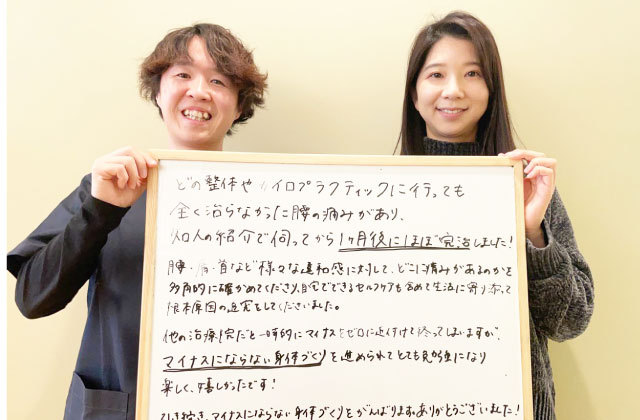 どの整体やカイロプラクティックに行っても
全く治らなかった腰の痛みがあり、
知人の紹介で伺ってから1ヶ月後にほぼ完治しました!
腰・肩・首など様々な違和感に対して、どこに痛みがあるのかを
多角的に確かめてくださり、自宅でできるセルフケアも含めて生活に寄り添って
根本原因の追究をしてくださいました。
他の治療院だと一時的にマイナスをゼロに近付けて終ってしまいますが、
マイナスにならない身体づくりを進められてとても勉強になり
楽しく、嬉しかったです!
引き続き、マイナスにならない身体づくりをがんばります。ありがとうございました!